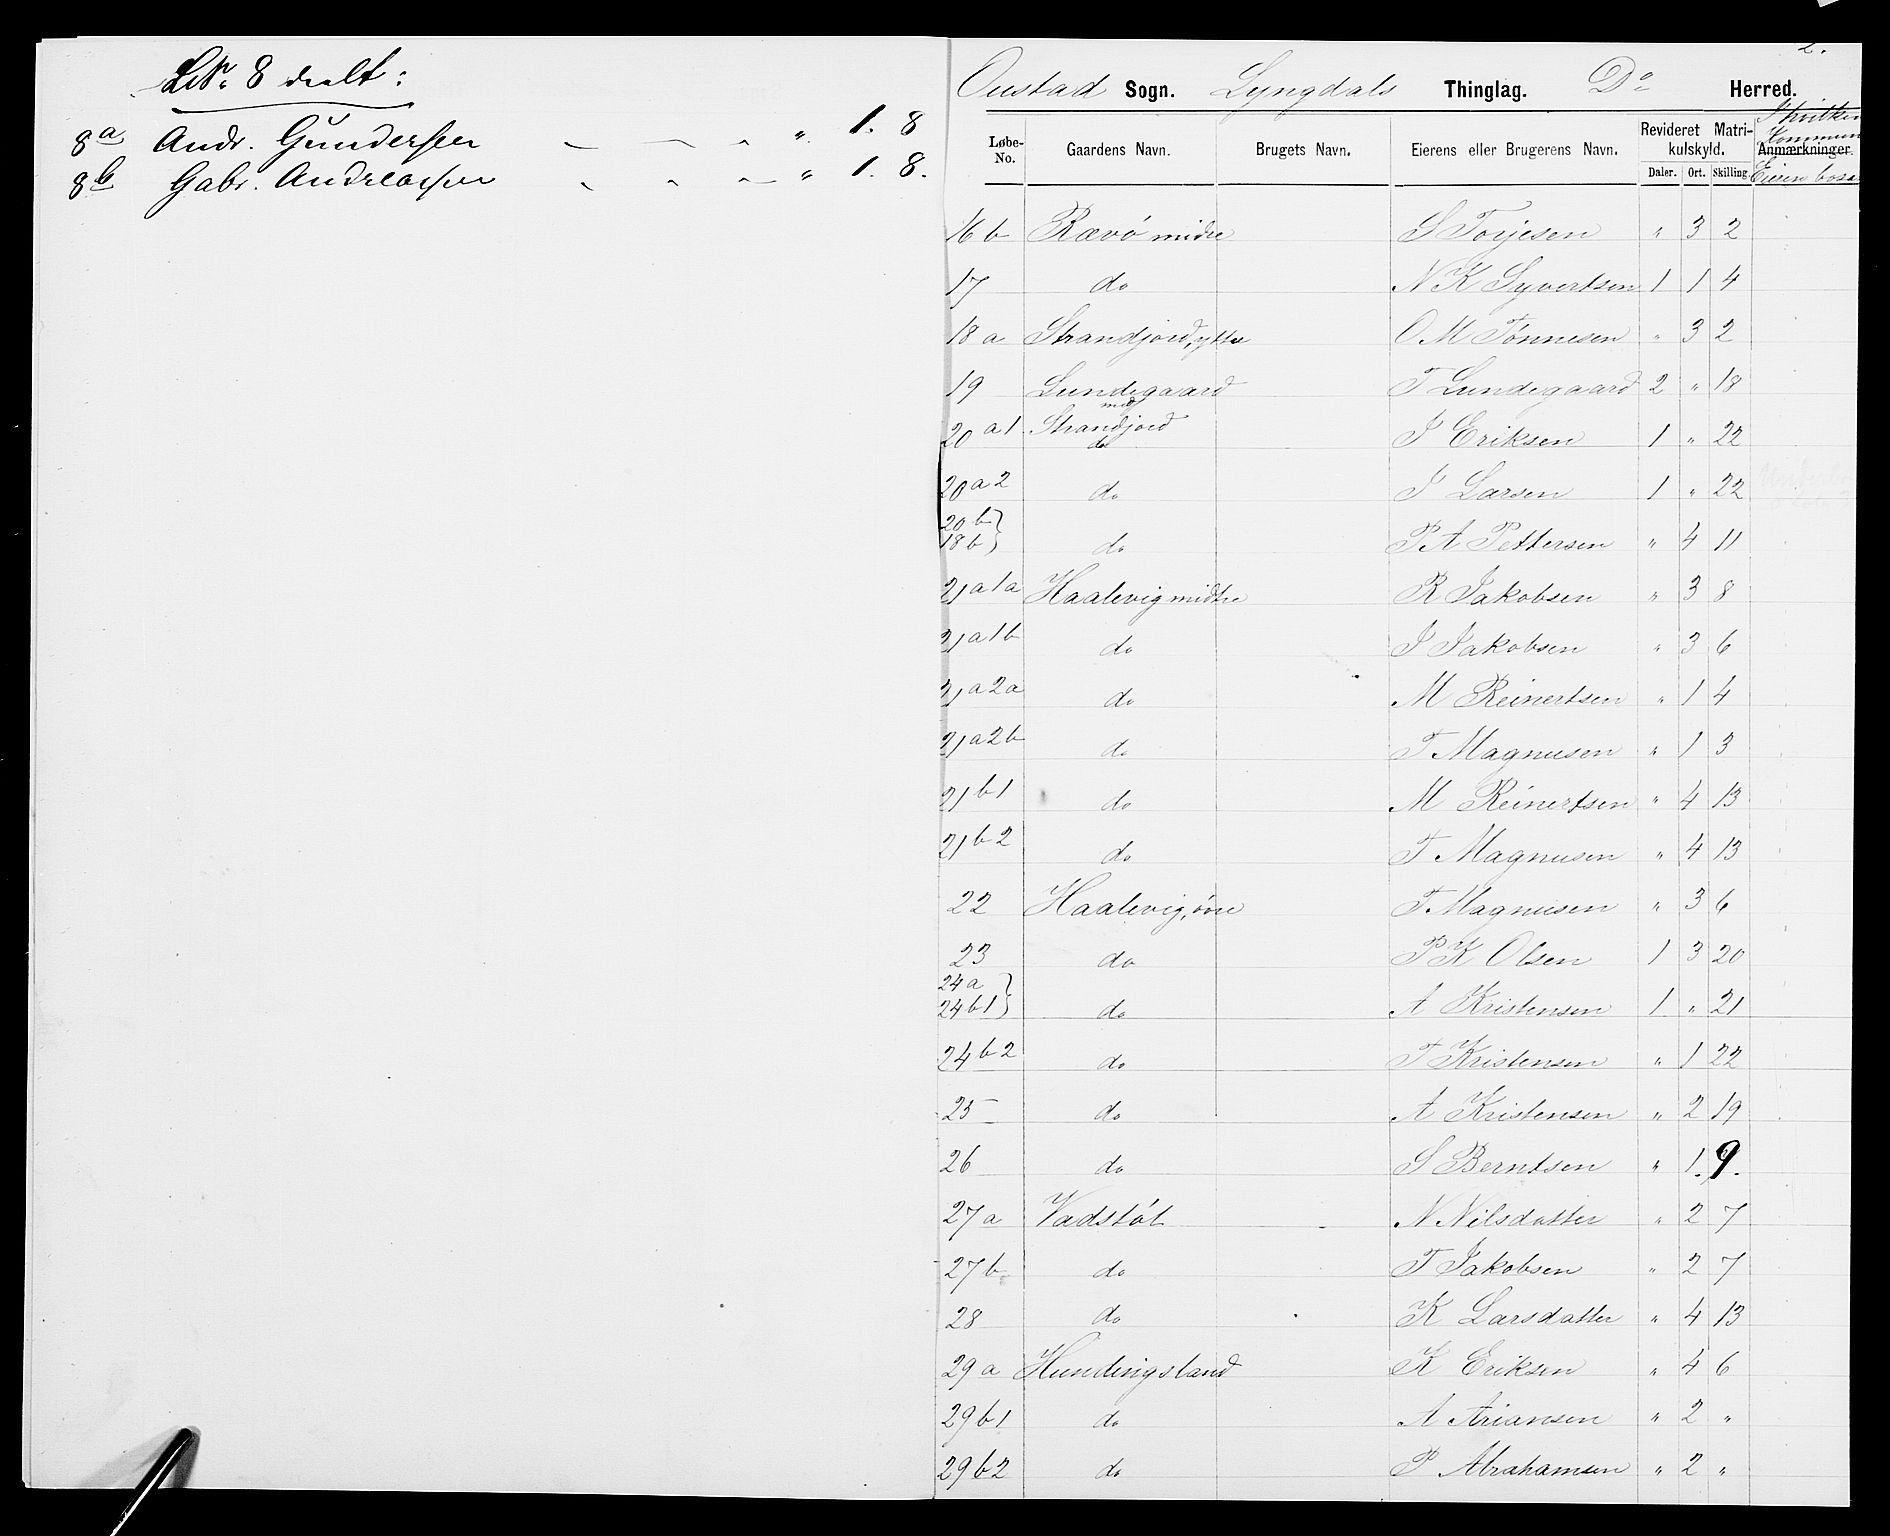 LNr. 8 deelt:
8a Andr. Gundersen " 1. 8
8b Gabr. Andreassen " 1. 8.
2.
Oustad Sogn. Lyngdals Thinglag. Do Herred.
Løbe-No. Gaardens Navn. Brugets Navn. Eierens eller Brugerens Navn. Revideret Matrikulskyld. Anmærkninger.
Daler. Ort. Skilling.
16 b Rævø midre S Torjesen " 3 2
17 do N K Syvertsen 1 1 4
18 a Strandjord, ytre O M Tønnesen " 3 2
19 Lundegaard T Lundegaard 2 " 18
20 a 1 Strandjord mid do J Eriksen 1 " 22
20 a 2 do J Larsen 1 " 22
20 b } 18 b } do P A Pettersen " 4 11
21 a 1 a Haalevig midtre R Jakobsen " 3 8
21 a 1 b do J Jakobsen " 3 6
21 a 2 a do M Reinertsen " 1 4
21 a 2 b do T Magnusen " 1 3
21 b 1 do M Reinertsen " 4 13
21 b 2 do T Magnusen " 4 13
22 Haalevig, øvre T Magnusen " 3 6
23 do P K Olsen 1 3 20
24 a } 24 b 1 } do A Kristensen 1 " 21
24 b 2 do T Kristensen " 1 22
25 do A Kristensen " 2 19
26 do S Berntsen " 1. 9.
27 a Vadstøl N Nilsdatter " 2 7
27 b do T Jakobsen " 2 7
28 do K Larsdatter " 4 13
29 a Hundingsland K Eriksen " 4 6
29 b 1 do A Ariansen " 2 "
29 b 2 do P Abrahamsen " 2 "